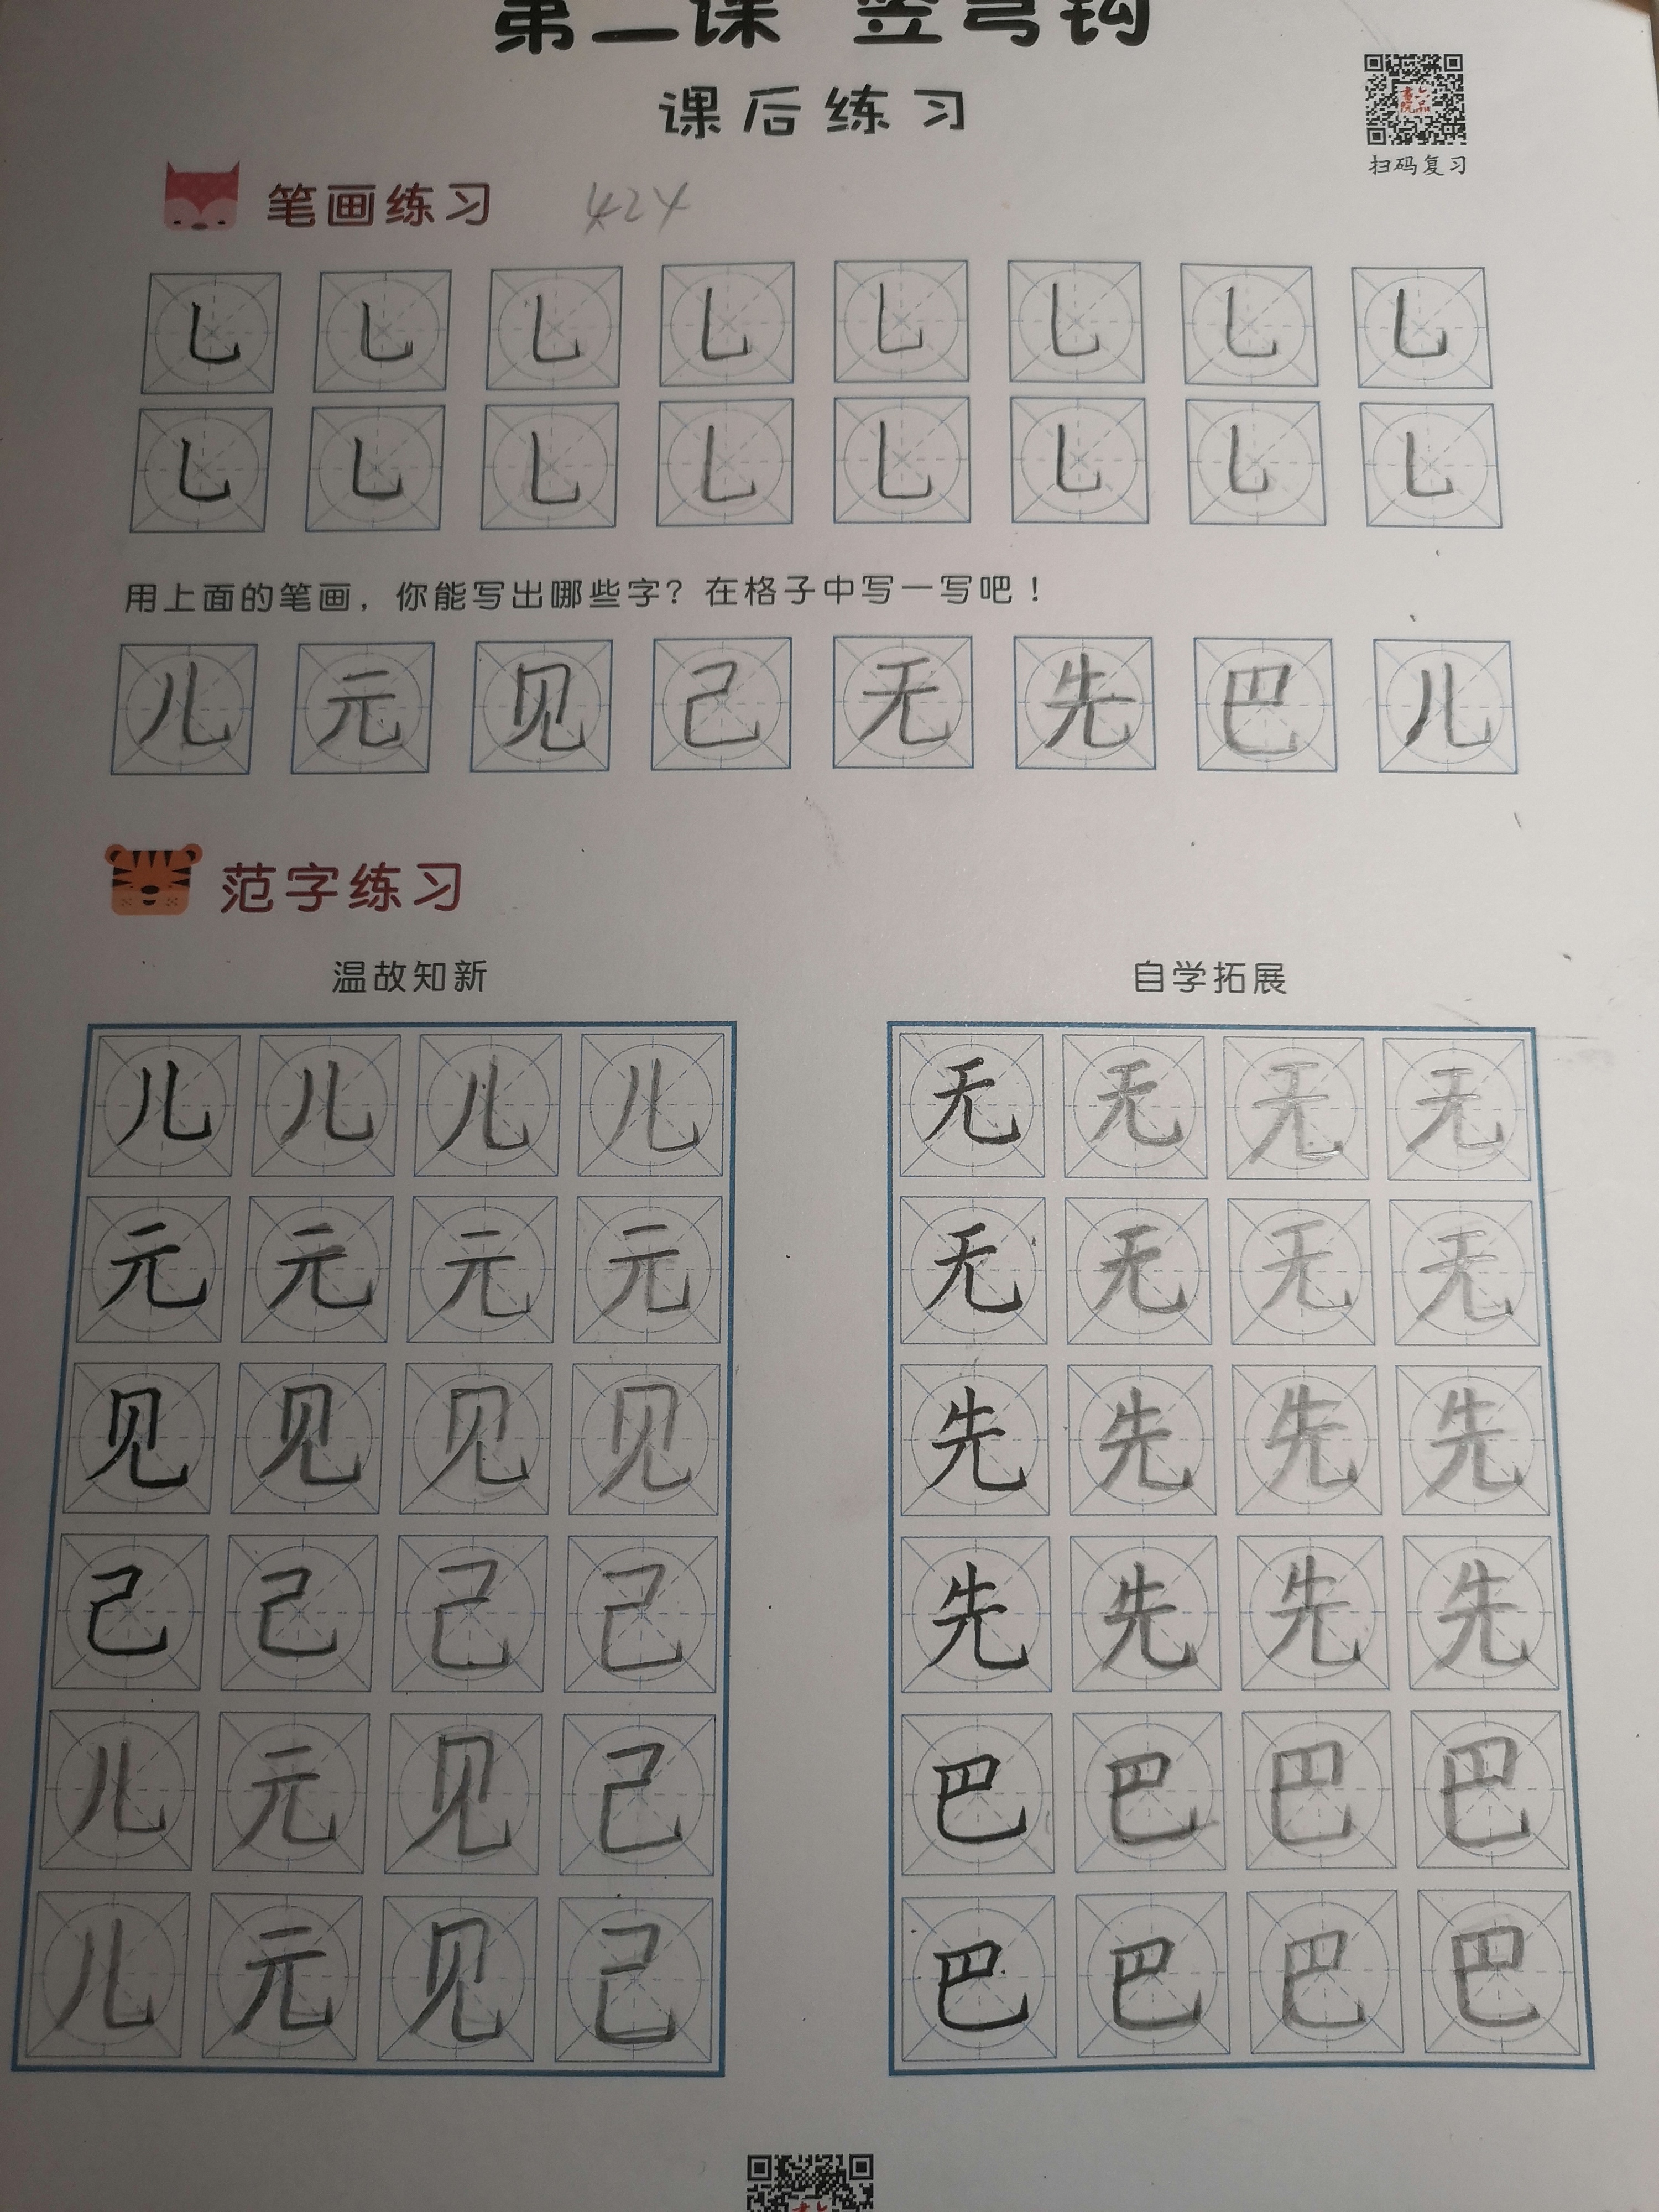 第二课 竖弯钩
课后练习
扫码复习
笔画练习 424
乚 乚 乚 乚 乚 乚 乚 乚
乚 乚 乚 乚 乚 乚 乚 乚
用上面的笔画，你能写出哪些字？在格子中写一写吧！
儿 元 见 己 无 先 巴 儿
范字练习
温故知新
儿 儿 儿 儿
元 元 元 元
见 见 见 见
己 己 己 己
儿 元 见 己
儿 元 见 己
自学拓展
无 无 无 无
无 无 无 无
先 先 先 先
先 先 先 先
巴 巴 巴 巴
巴 巴 巴 巴